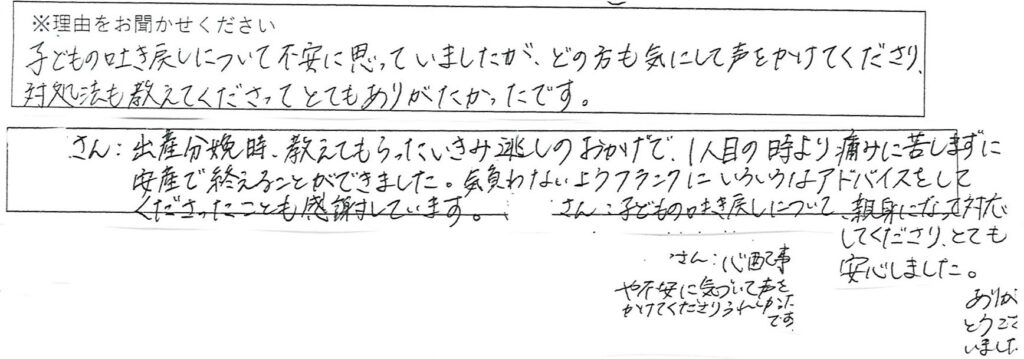 ※理由をお聞かせください
子どもの吐き戻しについて不安に思っていましたが、どの方も気にして声をかけてくださり、
対処法も教えてくださってとてもありがたかったです。
さん：出産分娩時、教えてもらったいきみ逃しのおかげで、1人目の時より痛みに苦しまずに
安産で終えることができました。気負わないようフランクにいろいろなアドバイスをして
くださったことも感謝しています。
さん：子どもの吐き戻しについて、親身になって対応
してくださり、とても
安心しました。
さん：心配事
や不安に気づいて声を
かけてくださりうれしかった
です
ありが
とうござ
いました